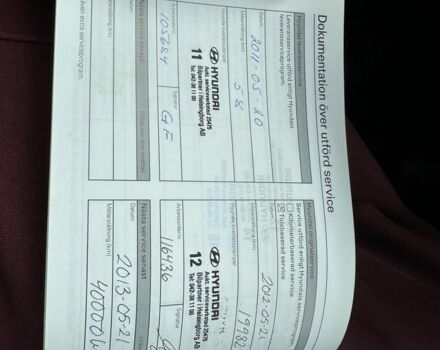 Dokumentation över utförd service
Hyundai leveransservice
Leveransservice utförd enligt Hyundais
leveransserviceprogram.
Datum
2011-05-20
Mätarställning (km)
58
Hyundai kvalitetsstämpel
HYUNDAI
Aukt. serviceverkstad 25475
11 Bilpartner i Helsingborg AB
Tel. 042-38 11 00
Arbetsordernr
105684
Signatur
GF
Nästa service senast
Datum
Mätarställning (km)
Hyundai originalservice
Service utförd enligt Hyundais serviceprogram.
Kilometerbaserad service
Tidsbaserad service
Datum
2012-05-21
Mätarställning (km)
Hyundai kvalitetsstämpel
HYUNDAI
Aukt. serviceverkstad 25475
12 Bilpartner i Helsingborg AB
Tel. 042-38 11 00
Arbetsordernr
116436
Signatur
Nästa service senast
Datum
2013-05-21
Mätarställning (km)
40000